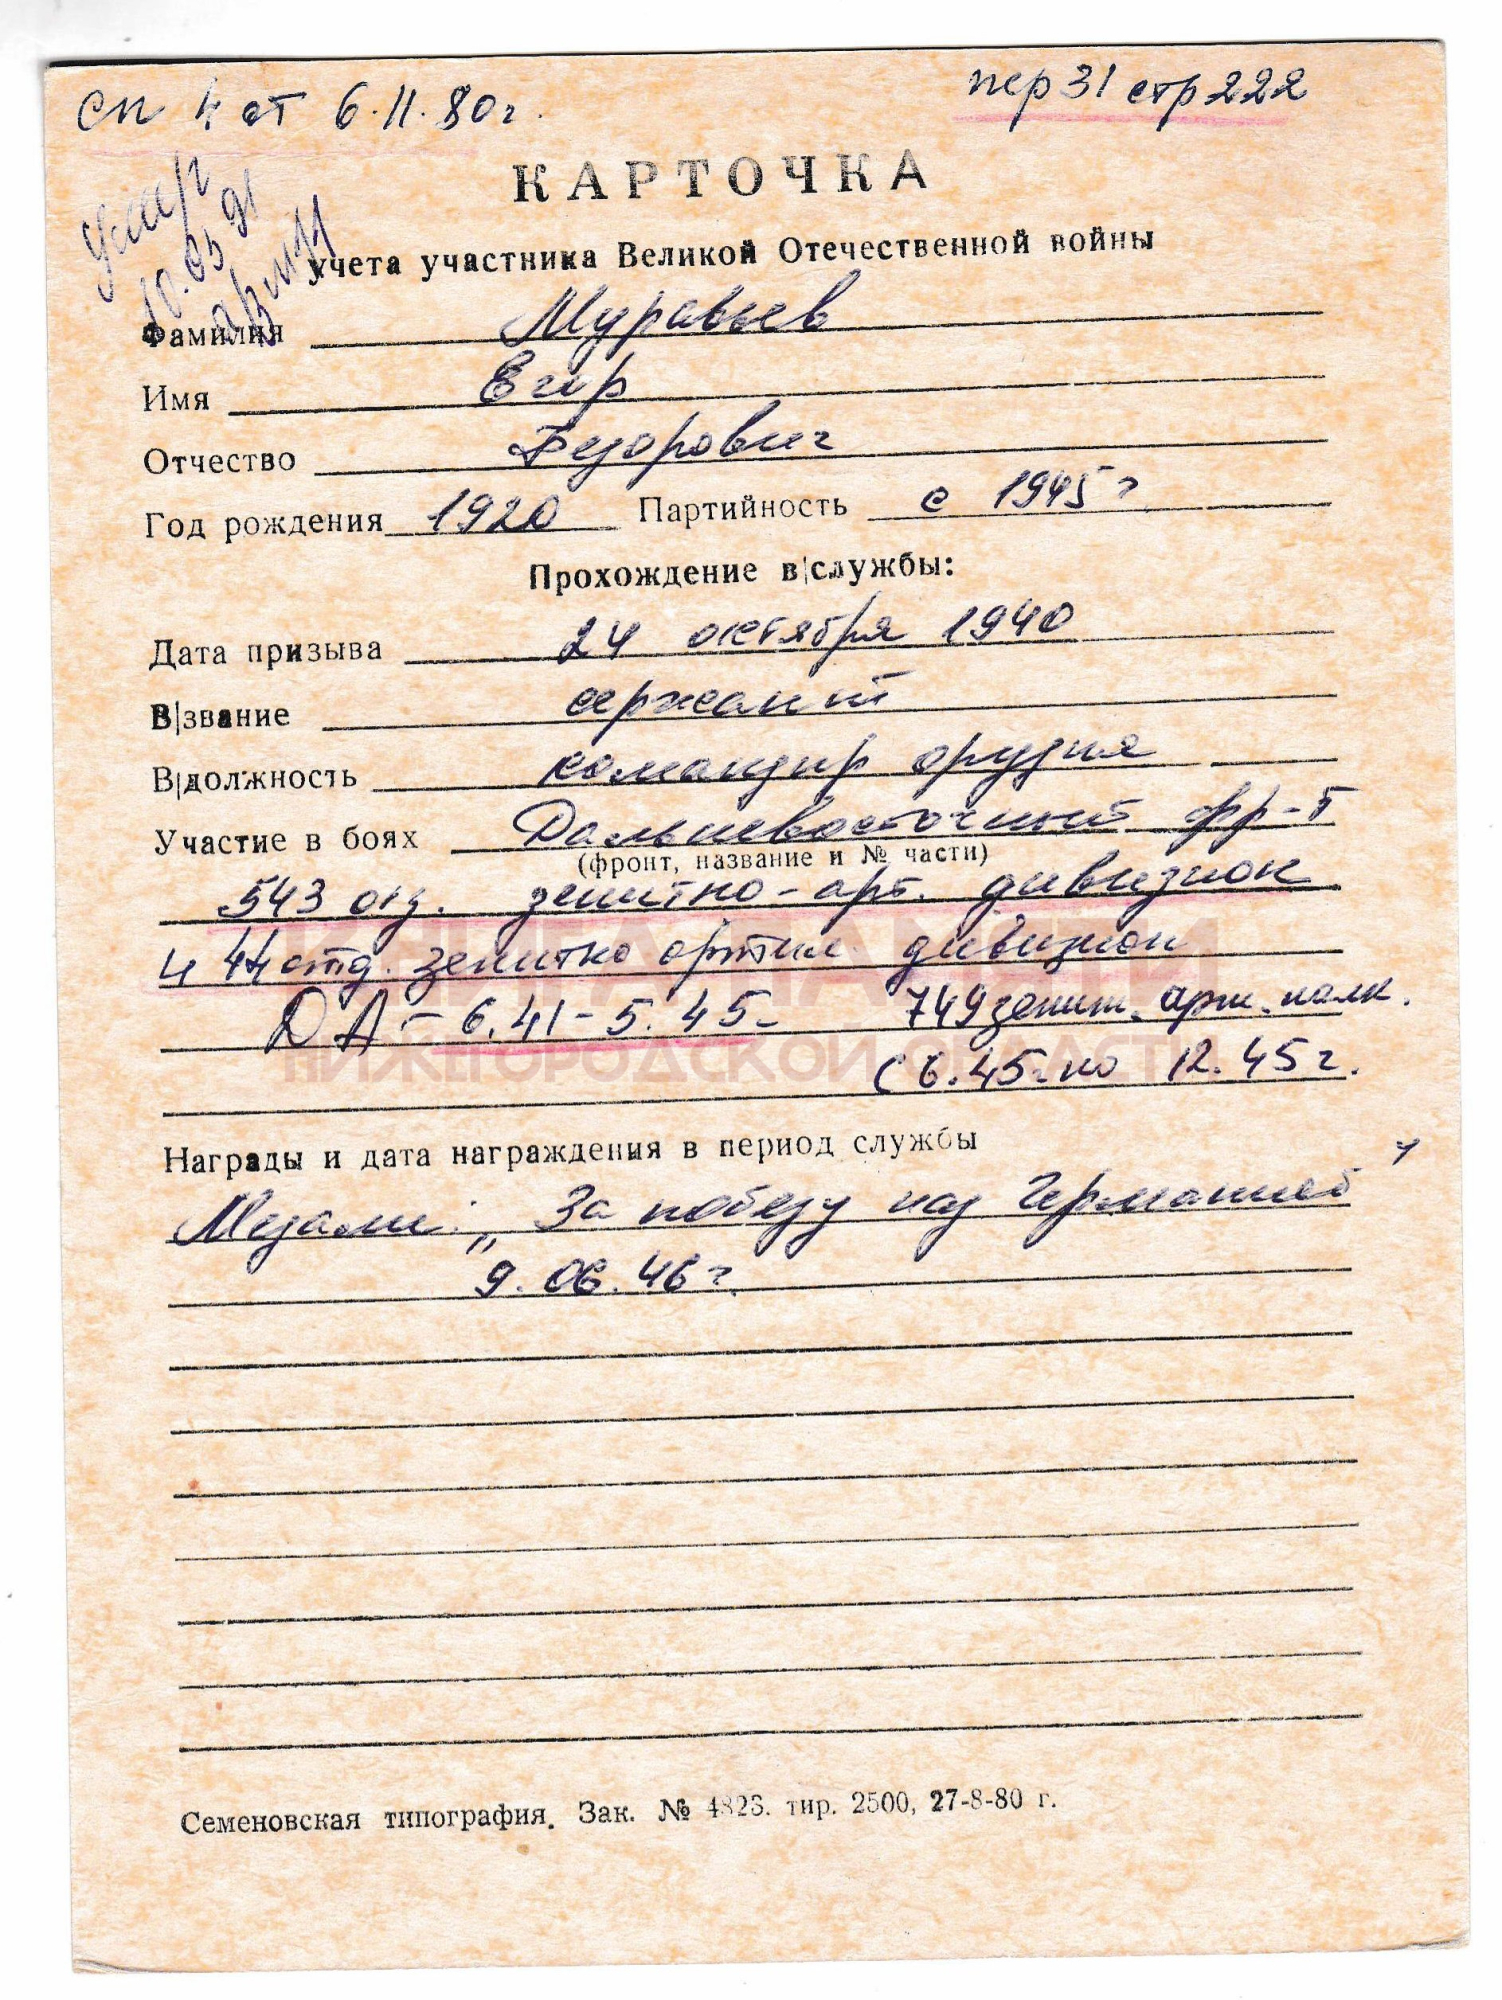 сп 4 от 6.11.80г.
пер 31 стр 222
умер
10.03.91
КАРТОЧКА
учета участника Великой Отечественной войны
Фамилия Муравьев
Имя Егор
Отчество Федорович
Год рождения 1920 Партийность с 1945 г
Прохождение в|службы:
Дата призыва 24 октября 1940
В|звание сержант
В|должность командир орудия
Участие в боях Дальневосточный фр-т
(фронт, название и № части)
543 отд. зенитно-арт. дивизион
и 44 отд. зенитно артил. дивизион
ДА - 6.41 - 5.45 - 749 зенит. арт. полк.
с 6.45г по 12.45 г.
КНИГА ПАМЯТИ
НИЖЕГОРОДСКОЙ ОБЛАСТИ
Награды и дата награждения в период службы
Медали: „За победу над Германией"
9.06.46 г.
Семеновская типография. Зак. № 4823. тир. 2500, 27-8-80 г.